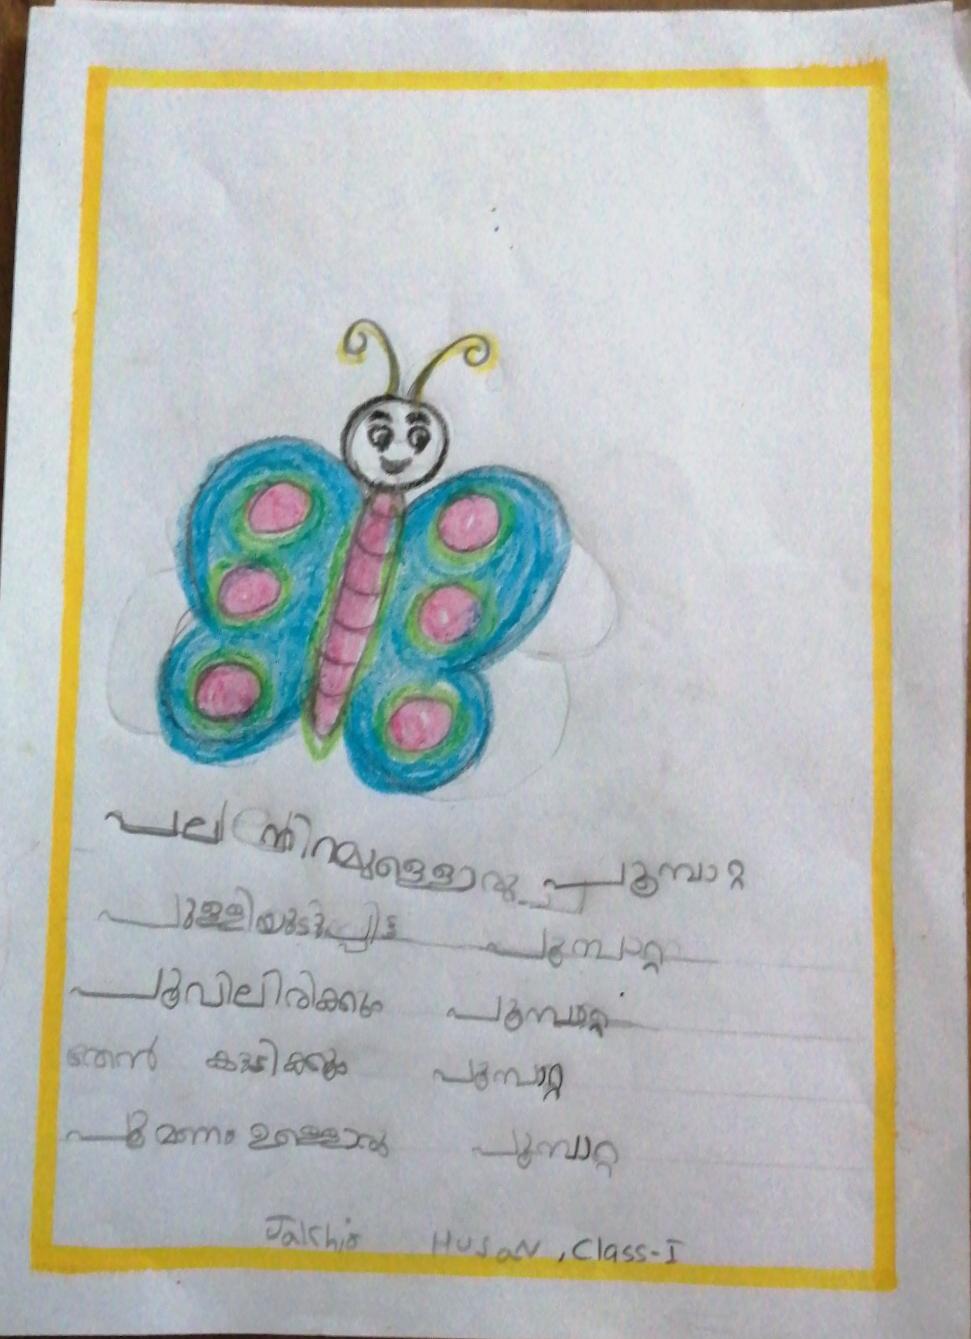 പല നിറമുള്ളൊരു പൂമ്പാറ്റ
പുള്ളിയുടുപ്പിട്ട പൂമ്പാറ്റ
പൂവിലിരിക്കും പൂമ്പാറ്റ
തേൻ കുടിക്കും പൂമ്പാറ്റ
പൂമണം ഉള്ളൊരു പൂമ്പാറ്റ
HUSaN, Class-I